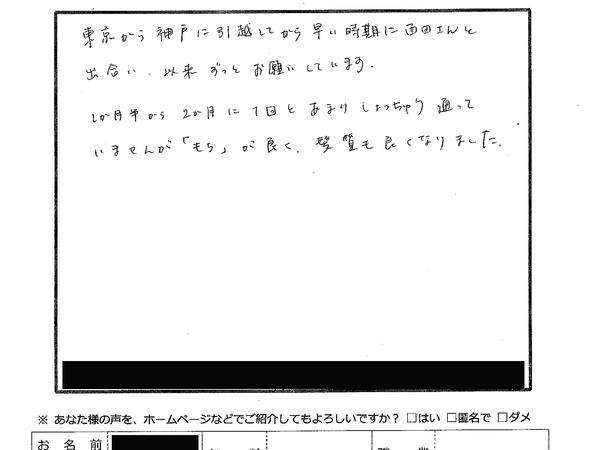 東京から神戸に引越してから早い時期に西田さんと
出会い、以来ずっとお願いしています。
1か月半から2か月に1回とあまりしょっちゅう通って
いませんが「もち」が良く、髪質も良くなりました。
※ あなた様の声を、ホームページなどでご紹介してもよろしいですか？ □はい □匿名で □ダメ
お 名 前